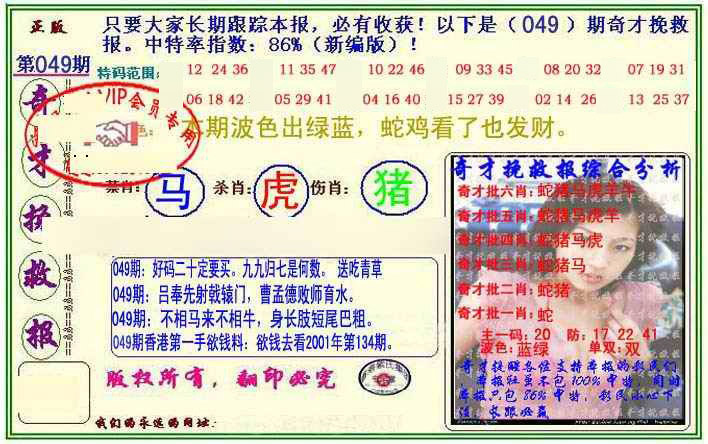 正版
只要大家长期跟踪本报，必有收获！以下是（049）期奇才挽救
报。中特率指数：86%（新编版）！
第049期
特码范围:
12 24 36 11 35 47 10 22 46 09 33 45 08 20 32 07 19 31
06 18 42 05 29 41 04 16 40 15 27 39 02 14 26 13 25 37
VIP会员专用
色：本期波色出绿蓝，蛇鸡看了也发财。
禁肖: 马 杀肖: 虎 伤肖: 猪
奇
才
救
报
049期：好码二十定要买。九九归七是何数。 送吃青草
049期：吕奉先射戟辕门，曹孟德败师育水。
049期：不相马来不相牛，身长肢短尾巴粗。
049期香港第一手欲钱料：欲钱去看2001年第134期。
版权所有，翻印必究
我们的永远的网址:
奇才挽救报综合分析
奇才批六肖: 蛇猪马虎羊牛
奇才批五肖: 蛇猪马虎羊
奇才批四肖: 蛇猪马虎
奇才批三肖: 蛇猪马
奇才批二肖: 蛇猪
奇才批一肖: 蛇
主一码: 20 防: 17 22 41
波色: 蓝绿 单双: 双
奇才提醒各位支持本报的彩民们
本报虽不包100%中特，同时
本报只包86%中特，彩民小心下
注，长跟必赢